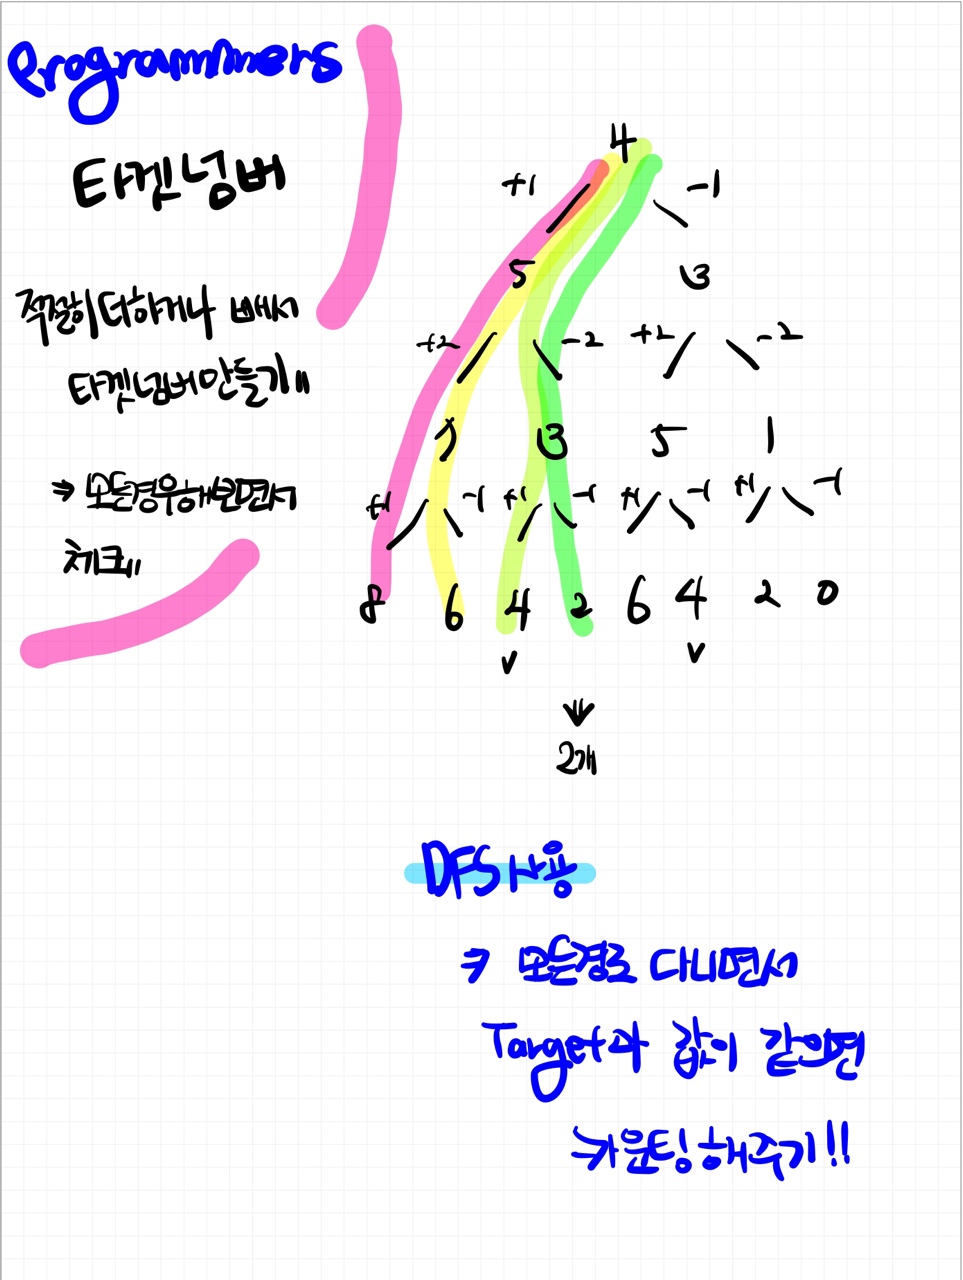 Programmers
타겟넘버
적절히 더하거나 빼서
타겟넘버 만들기!!
⇒ 모든경우해보면서
체크!!
4
+1 -1
5 3
+2 -2 +2 -2
7 3 5 1
+1 -1 +1 -1 +1 -1 +1 -1
8 6 4 2 6 4 2 0
v v
2개
DFS 사용
⇒ 모든경로 다니면서
Target과 값이 같으면
카운팅해주기!!